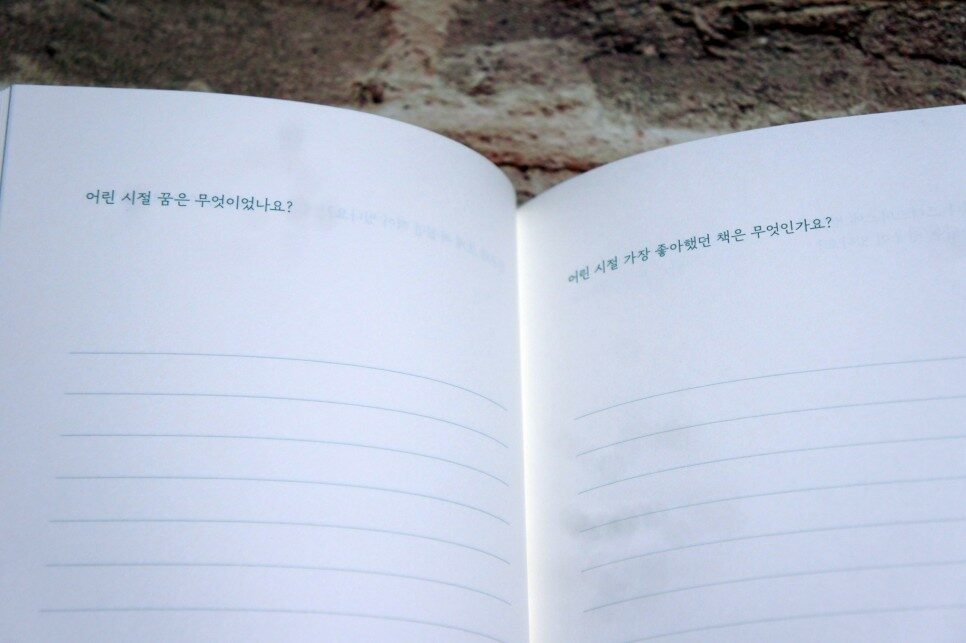 어린 시절 꿈은 무엇이었나요?
어린 시절 가장 좋아했던 책은 무엇인가요?